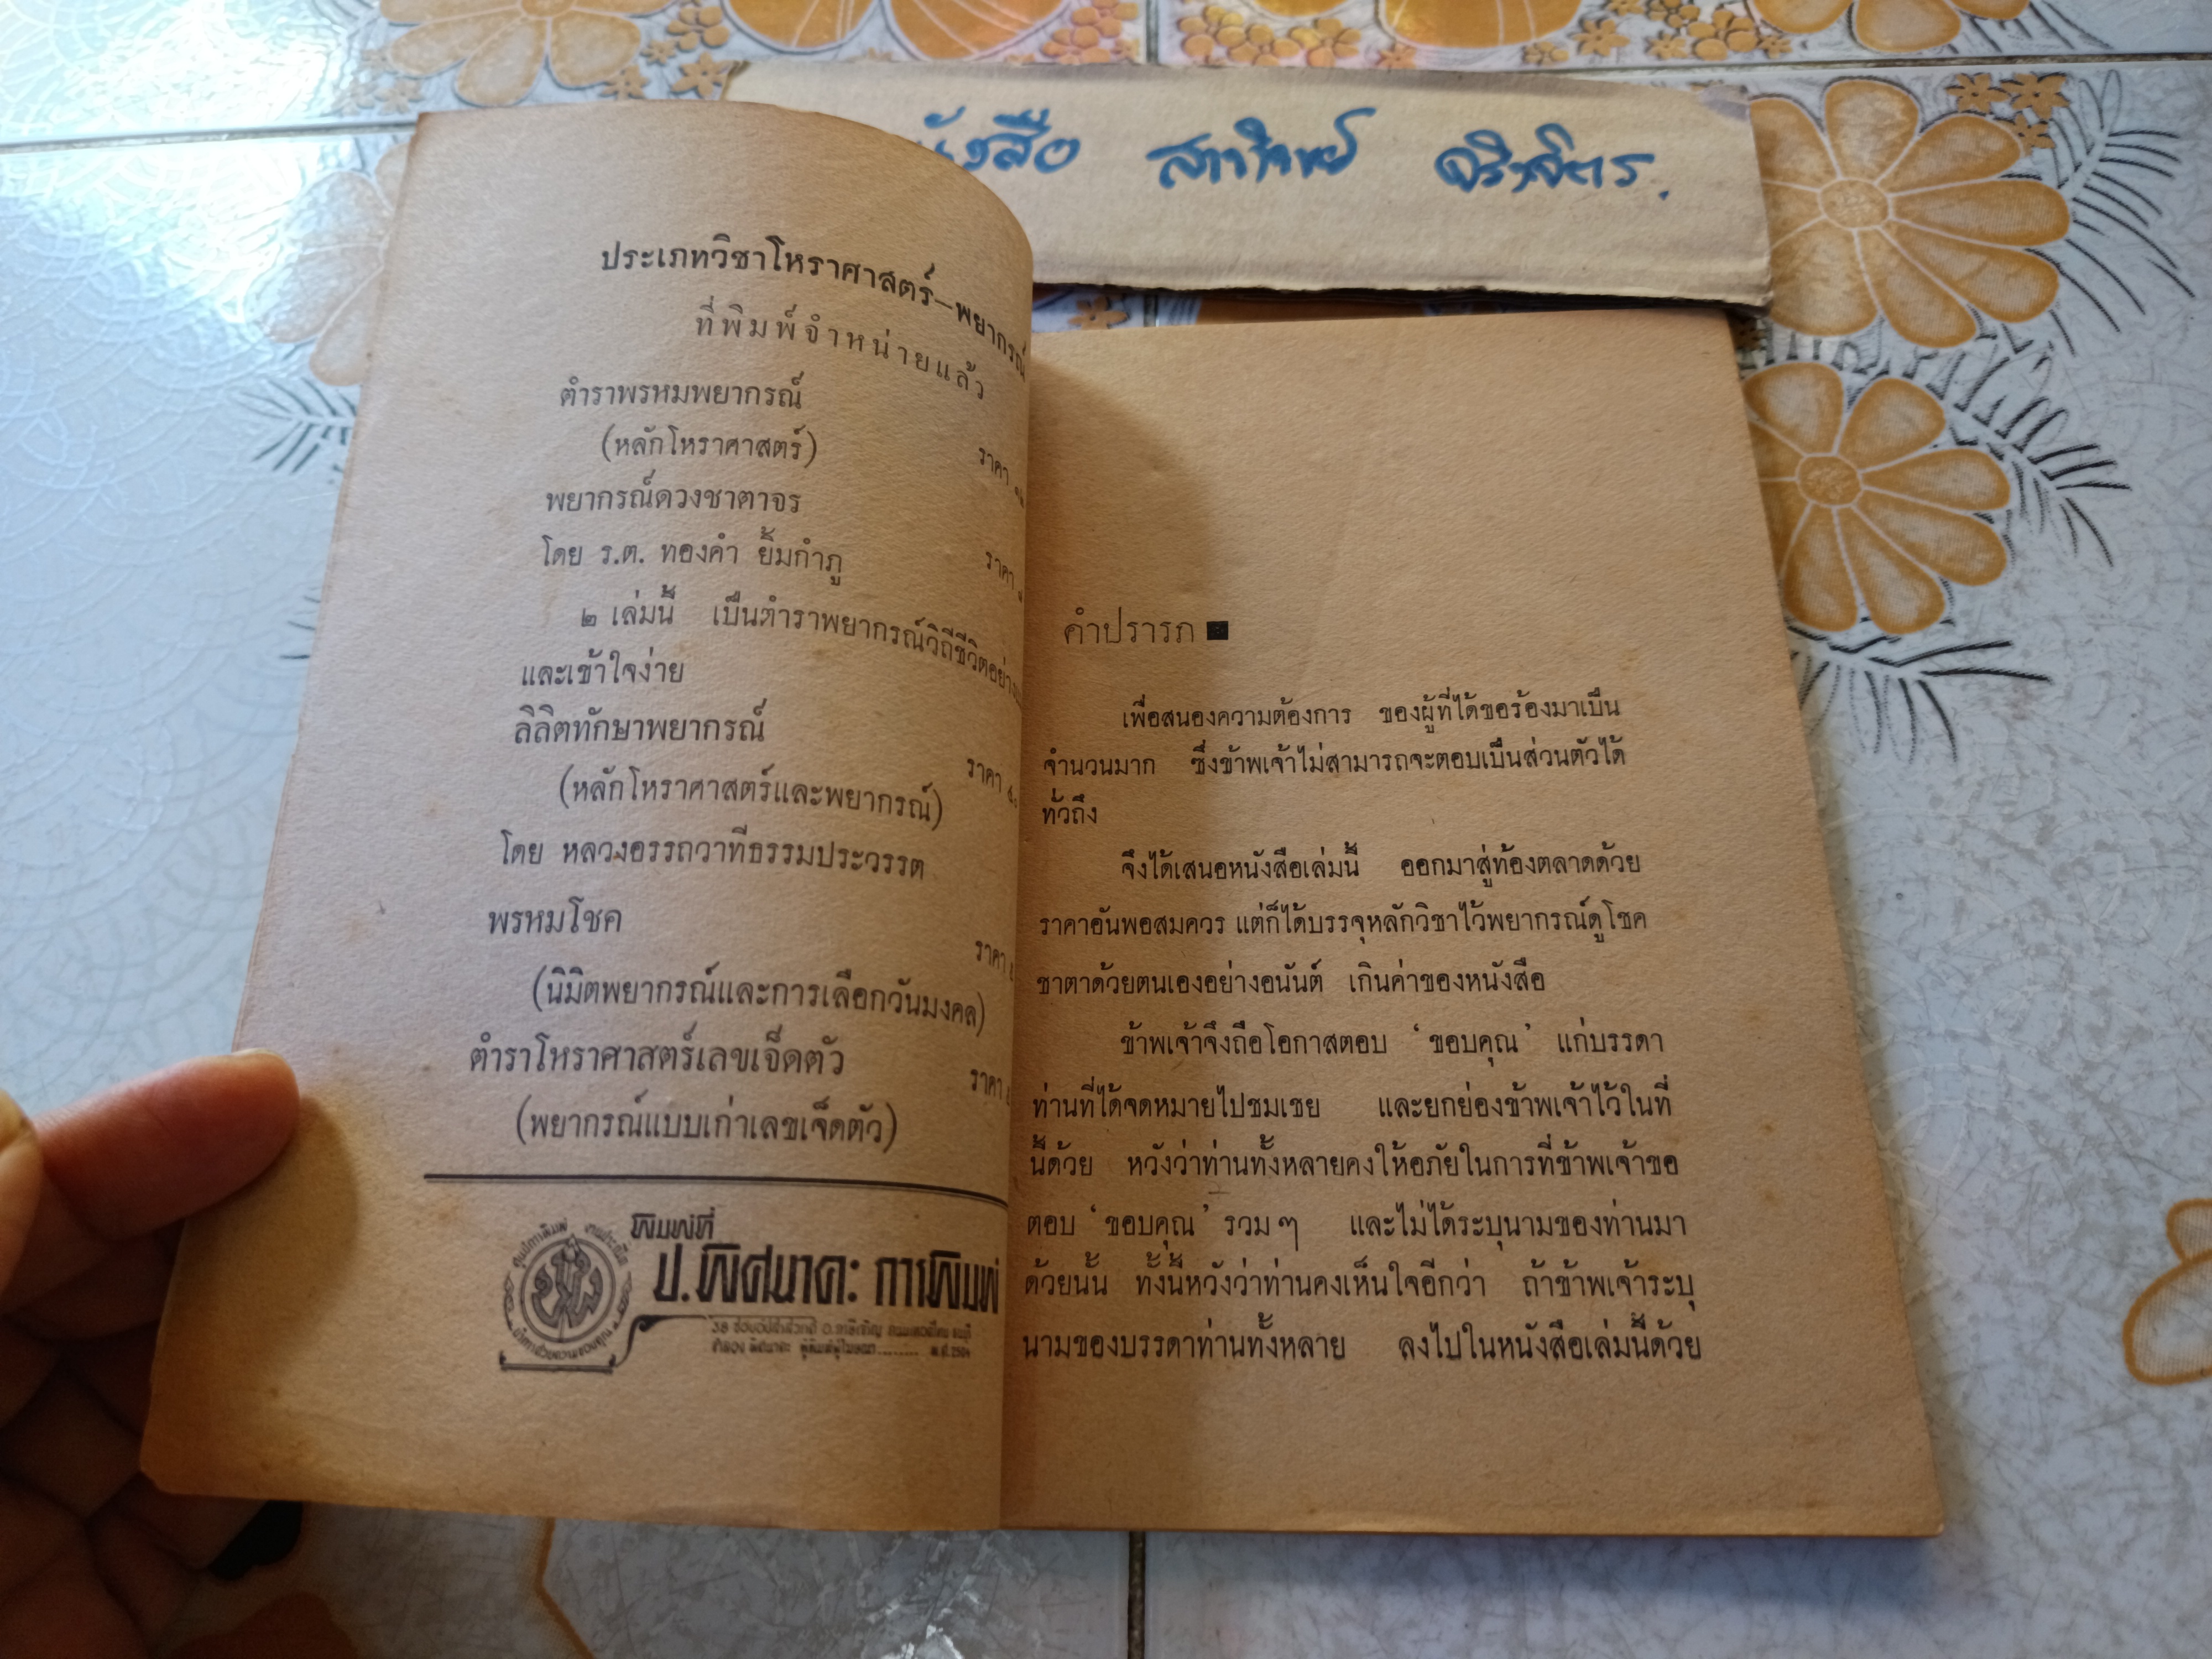 ประเภทวิชาโหราศาสตร์—พยากรณ์
ที่พิมพ์จำหน่ายแล้ว
ตำราพรหมพยากรณ์
(หลักโหราศาสตร์) ราคา
พยากรณ์ดวงชาตาจร
โดย ร.ต. ทองคำ ยิ้มกำภู ราคา
๒ เล่มนี้ เป็นตำราพยากรณ์วิถีชีวิตอย่าง
และเข้าใจง่าย
ลิลิตทักษาพยากรณ์
(หลักโหราศาสตร์และพยากรณ์) ราคา
โดย หลวงอรรถวาทีธรรมประวรรต
พรหมโชค
(นิมิตพยากรณ์และการเลือกวันมงคล) ราคา
ตำราโหราศาสตร์เลขเจ็ดตัว
(พยากรณ์แบบเก่าเลขเจ็ดตัว) ราคา
พิมพ์ที่
ป.พิศนาคะ การพิมพ์
หนังสือ
คำปรารภ
เพื่อสนองความต้องการ ของผู้ที่ได้ขอร้องมาเป็น
จำนวนมาก ซึ่งข้าพเจ้าไม่สามารถจะตอบเป็นส่วนตัวได้
ทั่วถึง
จึงได้เสนอหนังสือเล่มนี้ ออกมาสู่ท้องตลาดด้วย
ราคาอันพอสมควร แต่ก็ได้บรรจุหลักวิชาไว้พยากรณ์ดูโชค
ชาตาด้วยตนเองอย่างอนันต์ เกินค่าของหนังสือ
ข้าพเจ้าจึงถือโอกาสตอบ ‘ขอบคุณ’ แก่บรรดา
ท่านที่ได้จดหมายไปชมเชย และยกย่องข้าพเจ้าไว้ในที่
นี้ด้วย หวังว่าท่านทั้งหลายคงให้อภัยในการที่ข้าพเจ้าขอ
ตอบ ‘ขอบคุณ’ รวม ๆ และไม่ได้ระบุนามของท่านมา
ด้วยนั้น ทั้งนี้หวังว่าท่านคงเห็นใจอีกว่า ถ้าข้าพเจ้าระบุ
นามของบรรดาท่านทั้งหลาย ลงไปในหนังสือเล่มนี้ด้วย